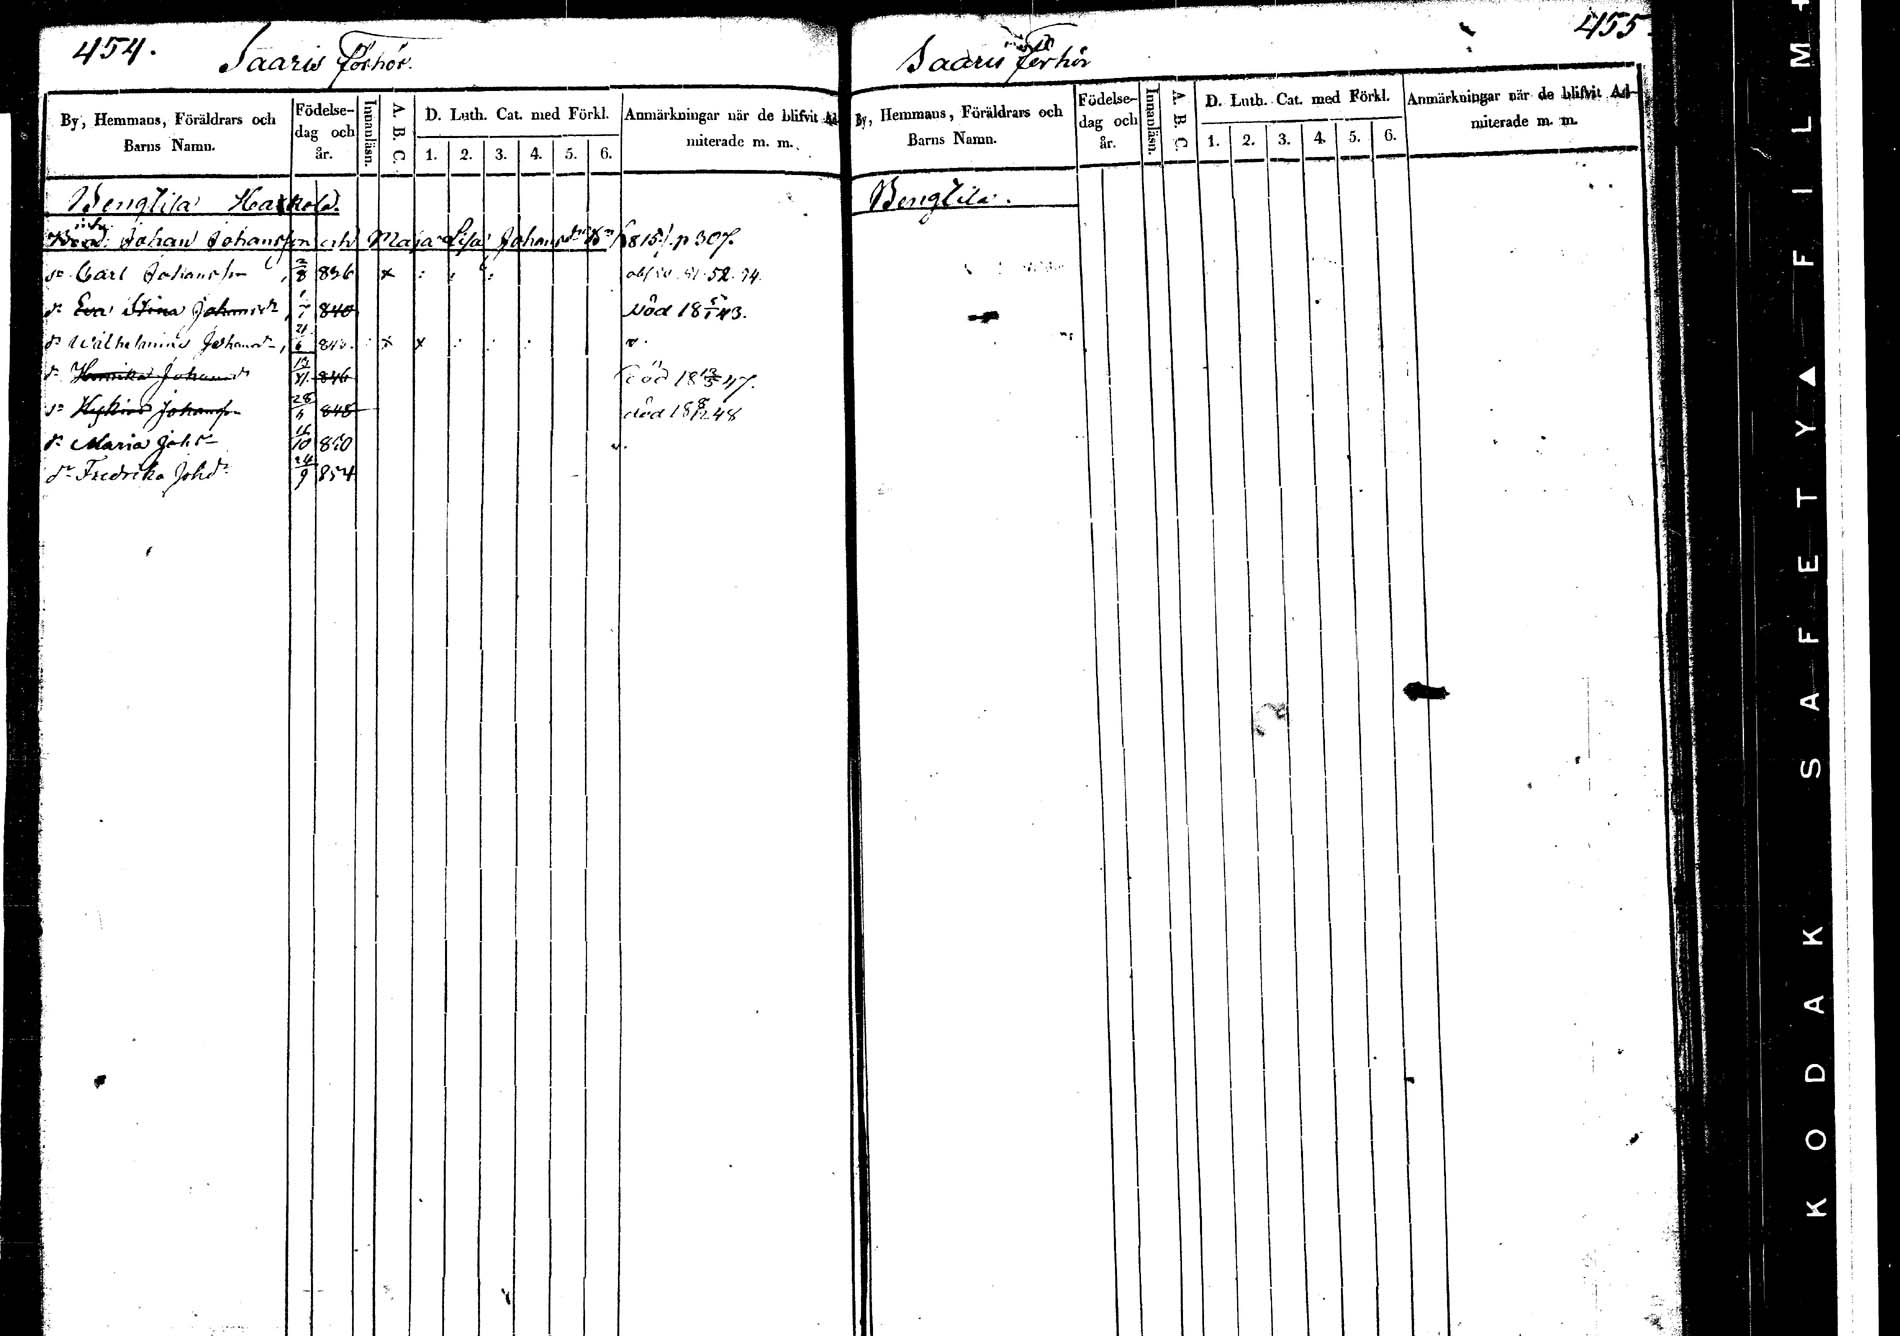 454.
Saaris Förhör.
By, Hemmans, Föräldrars och Barns Namn.
Födelse-dag och år.
Innanläsn.
A. B. C.
D. Luth. Cat. med Förkl.
1. 2. 3. 4. 5. 6.
Anmärkningar när de blifvit Ad-
miterade m. m.
Bengtila
Johan Johansson och Maja Lisa Johansdr p 307.
Sn Carl Johansson 2/8 836 x
dr Eva Stina Johansdr 840 död 18 43.
dr Wilhelmina Johansdr x x
dr Henrika Johansdr 846 död 18 47.
Johansson död 18 48
dr Maria Johdr 10 850
dr Fredrika Johdr 24/9 854
455.
Saaris Förhör
By, Hemmans, Föräldrars och Barns Namn.
Födelse-dag och år.
Innanläsn.
A. B. C.
D. Luth. Cat. med Förkl.
1. 2. 3. 4. 5. 6.
Anmärkningar när de blifvit Ad-
miterade m. m.
Bengtila.
KODAK SAFETY▲FILM +